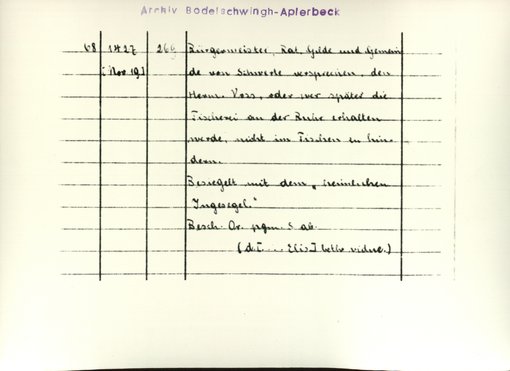 Archiv Bodelschwingh-Aplerbeck
68 1427 269 Bürgermeister, Rat, Gilde und Gemein
[Nov 19] de von Schwerte versprechen, den
Herm. Voss, oder wer später die
Fischerei an der Ruhr erhalten
werde, nicht im Fischen zu hin-
dern.
Besiegelt mit dem „heimlichen
Ingesegel."
Besch. Or. pgm. S. ab.
(d. [.... Elis] beth vidue.)